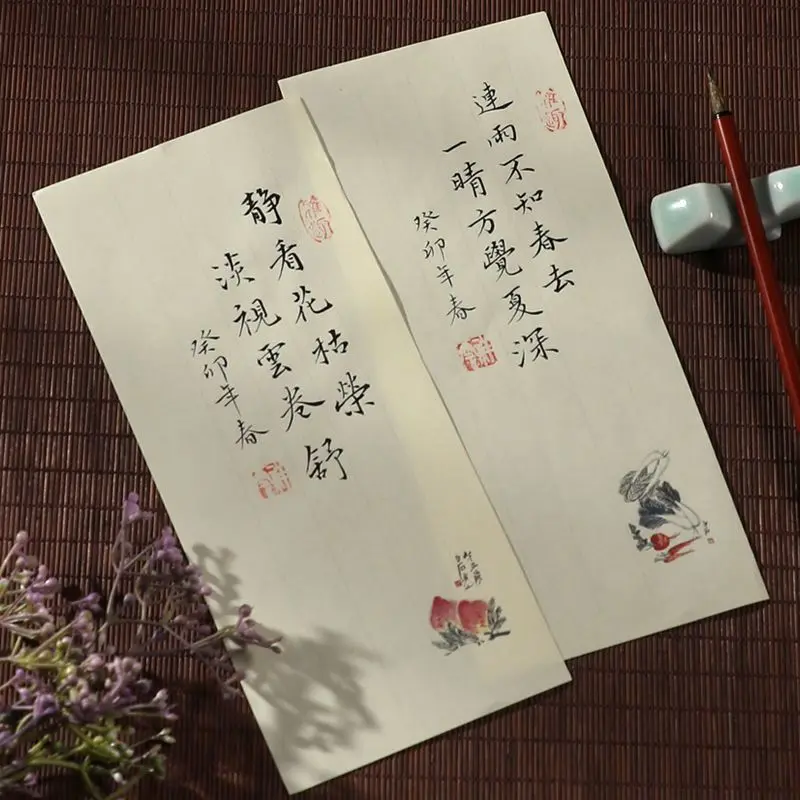 連雨不知春去
一晴方覺夏深
癸卯年春
静看花枯榮
淡視雲卷舒
癸卯年春